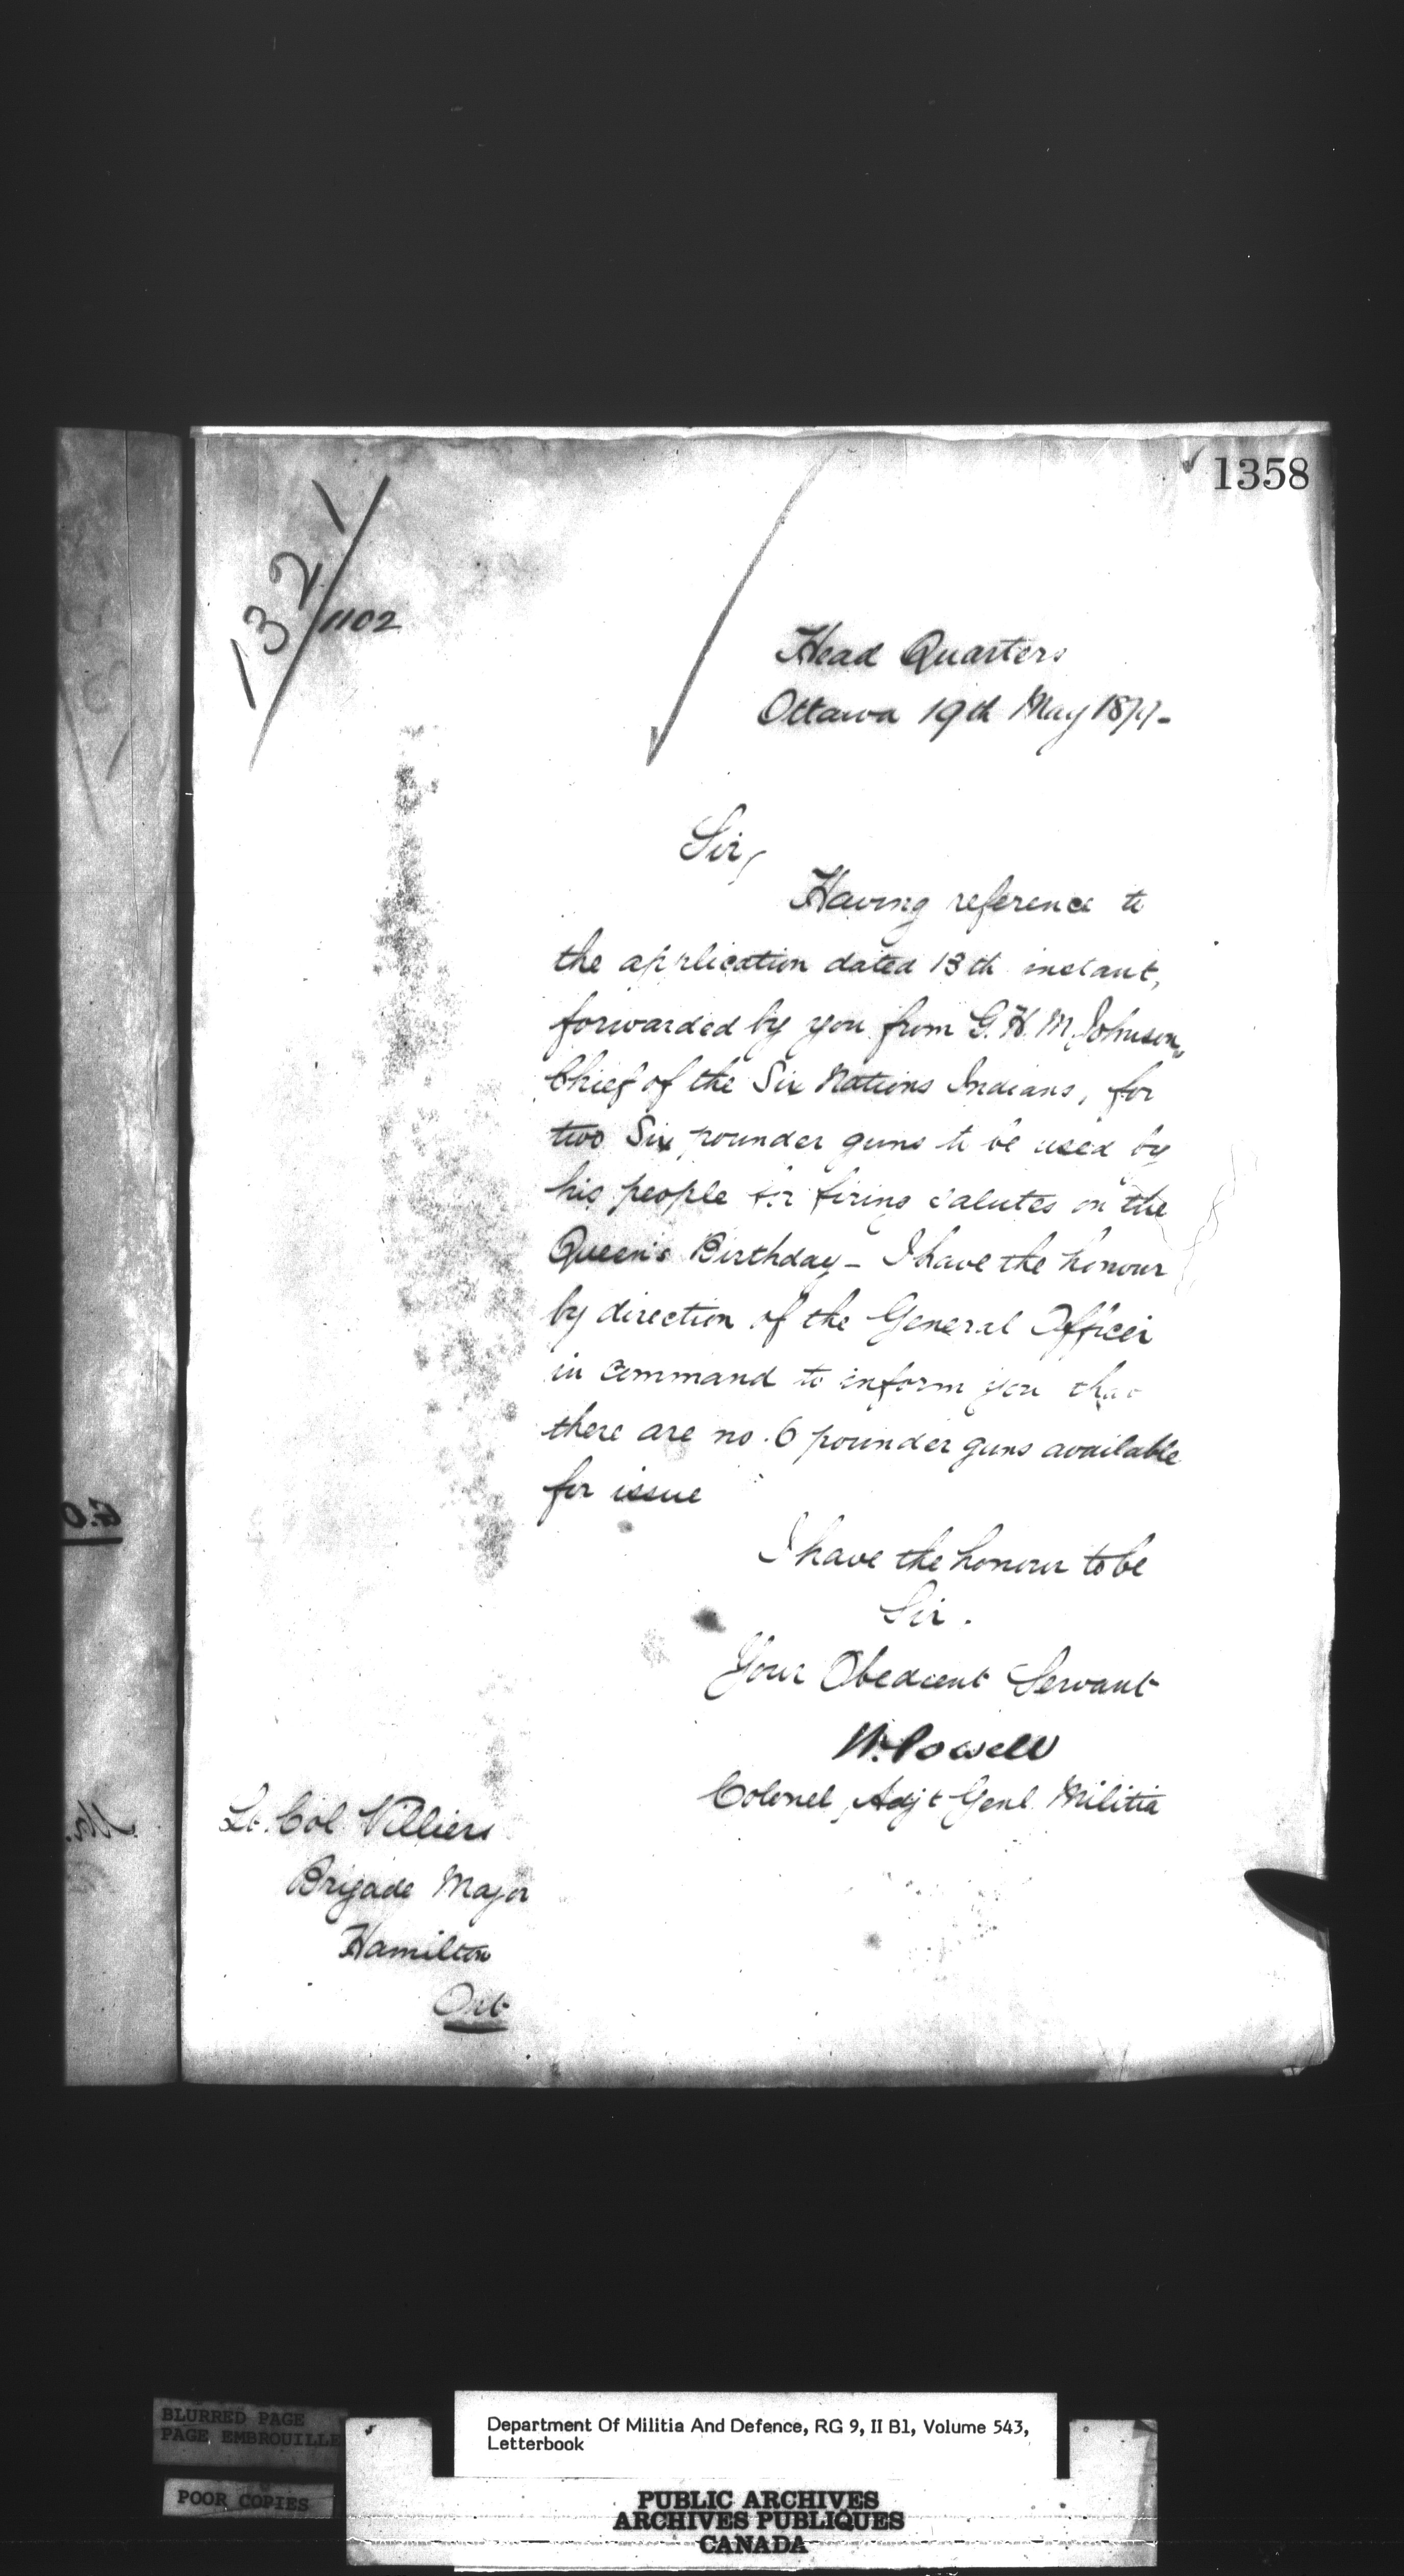 1358
1321
1102
Head Quarters
Ottawa 19th May 1877-
Sir,
Having reference to
the application dated 13th instant,
forwarded by you from G. H. M. Johnson,
Chief of the Six Nations Indians, for
two Six pounder guns to be used by
his people for firing salutes on the
Queen's Birthday - I have the honour
by direction of the General Officer
in command to inform you that
there are no 6 pounder guns available
for issue
I have the honour to be
Sir.
Your Obedient Servant
W. Powell
Colonel, Adjt Genl. Militia
Lt. Col. Villiers
Brigade Major
Hamilton
Ont
BLURRED PAGE
PAGE EMBROUILLE
POOR COPIES
Department Of Militia And Defence, RG 9, II B1, Volume 543,
Letterbook
PUBLIC ARCHIVES
ARCHIVES PUBLIQUES
CANADA